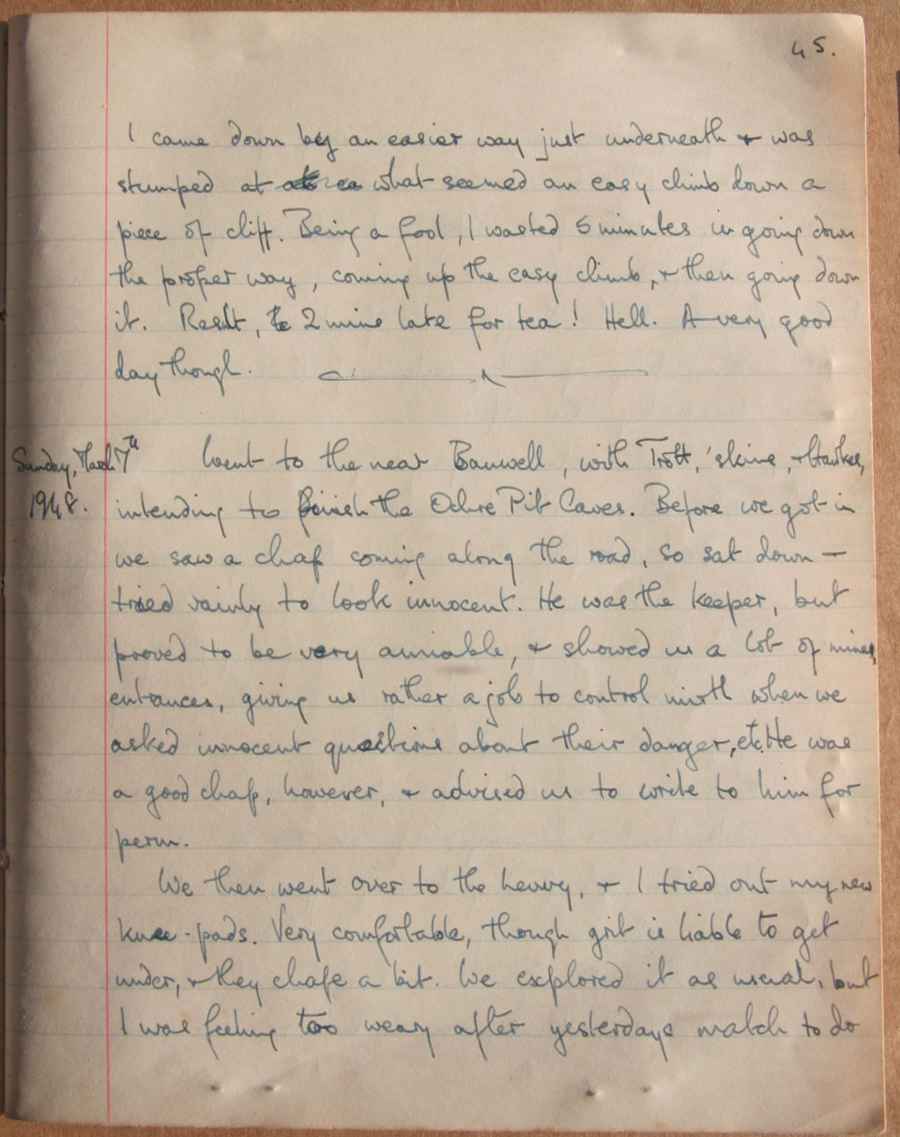 45.
I came down by an easier way just underneath & was
stumped at what seemed an easy climb down a
piece of cliff. Being a fool, I wasted 5 minutes in going down
the proper way, coming up the easy climb, & then going down
it. Result, 2 mins late for tea! Hell. A very good
day though.
Sunday, March 7th
1948.
Went to the near Banwell, with Trott, 'skine, &
intending to finish the Ochre Pit Caves. Before we got in
we saw a chap coming along the road, so sat down –
tried vainly to look innocent. He was the keeper, but
proved to be very amiable, & showed us a lot of mines
entrances, giving us rather a job to control mirth when we
asked innocent questions about their danger, etc. He was
a good chap, however, & advised us to write to him for
perm.
We then went over to the & I tried out my new
knee-pads. Very comfortable, though grit is liable to get
under, & they chafe a bit. We explored it as usual, but
I was feeling too weary after yesterdays match to do